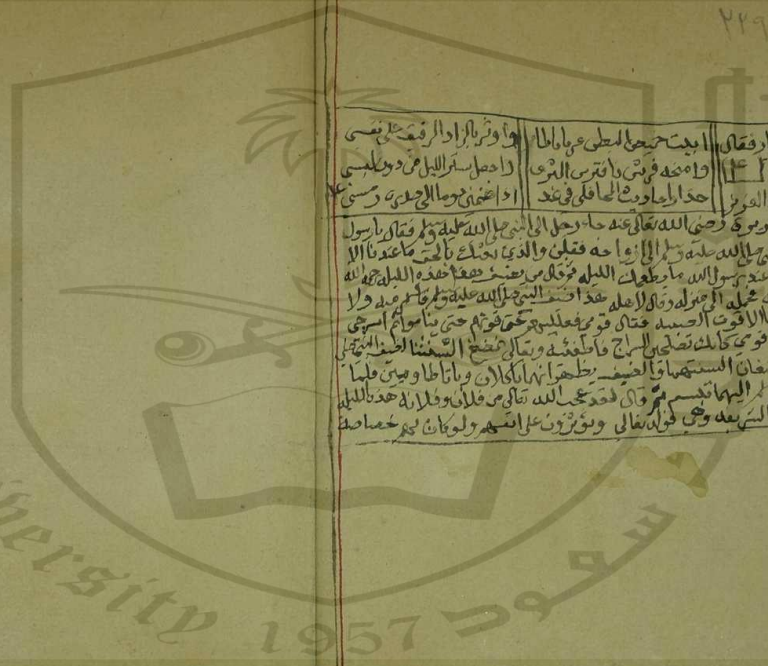 ٢٢٩
ار فقال ابيت خميص البطن غرثان طاويا واوثر بالزاد الرفيق على نفسي
وامنحه فرشي وافترش الثرى واجعل ستر الليل من دون لبسي
العزيز حذار احاديث المحافل في غد اذا ضمني يوما الى صدره رمسي
رضي الله تعالى عنه جاء رجل الى النبي صلى الله عليه وسلم فقال يا رسول
صلى الله عليه وسلم الى ازواجه فقلن والذي بعثك بالحق ما عندنا الا
عند رسول الله ما يطعمك الليلة ثم قال من يضيف هذا هذه الليلة رحمه الله
فحمله الى منزله وقال لاهله هذا ضيف النبي صلى الله عليه وسلم ولا
الا قوت الصبية فقال قومي فعلليهم عن قوتهم حتى يناموا ثم اسرجي
قومي كانك تصلحين السراج فاطفئيه وتعالي نمضغ السنتنا لضيف
يمضغان السنتهما والضيف يظن انهما ياكلان وباتا طاويين فلما
اليهما تبسم ثم قال لقد عجب الله تعالى من فلان وفلانة هذه الليلة
الشريفة وهي قوله تعالى ويؤثرون على انفسهم ولو كان بهم خصاصة
سعود
versity 1957